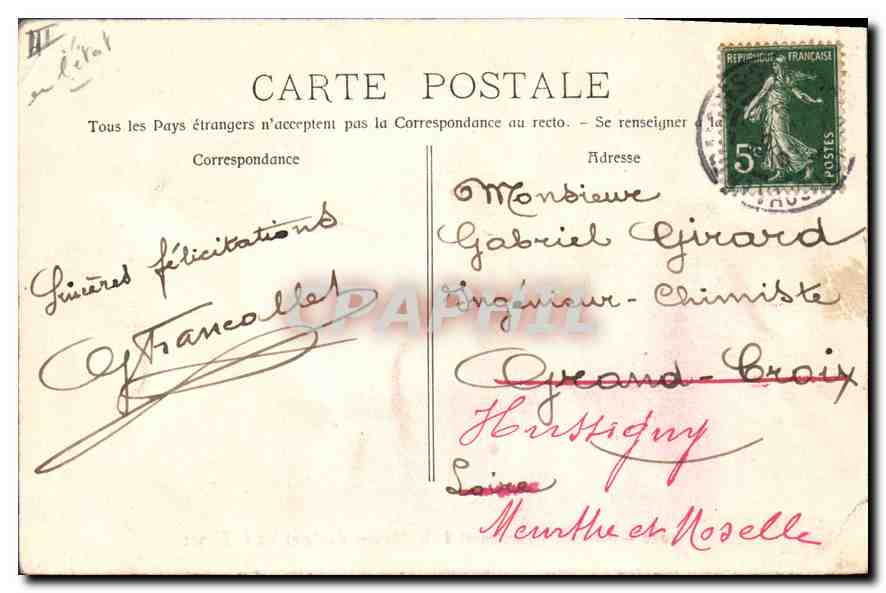 III
en l'état
CARTE POSTALE
Tous les Pays étrangers n'acceptent pas la Correspondance au recto. - Se renseigner à la
Correspondance
Sincères félicitations
GFrancallet
Adresse
REPUBLIQUE FRANÇAISE
5c
POSTES
Monsieur
Gabriel Girard
Ingénieur-Chimiste
Grand-Croix
Hussigny
Loire
Meurthe et Moselle
CPAPHIL